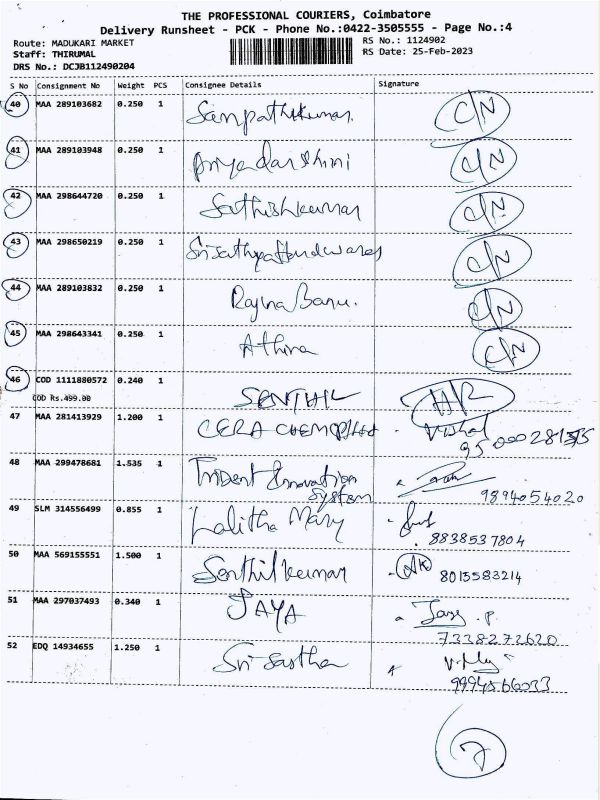 THE PROFESSIONAL COURIERS, Coimbatore
Delivery Runsheet - PCK - Phone No.:0422-3505555 - Page No.:4
Route: MADUKARI MARKET RS No.: 1124902
Staff: THIRUMAL RS Date: 25-Feb-2023
DRS No.: DCJB112490204
S No Consignment No Weight PCS Consignee Details Signature
40 MAA 289103682 0.250 1 Sampathkumar. C/N
41 MAA 289103948 0.250 1 Priyadarshini C/N
42 MAA 298644720 0.250 1 Sathishkumar C/N
43 MAA 298650219 0.250 1 C/N
44 MAA 289103832 0.250 1 Rajina Banu. C/N
45 MAA 298643341 0.250 1 Athira C/N
46 COD 1111880572 0.240 1 SENTHIL
COD Rs.499.00
47 MAA 281413929 1.200 1 CERA Vishal
48 MAA 299478681 1.535 1 Trident Innovation
System 9894054020
49 SLM 314556499 0.855 1 Lalitha Mary
8838537804
50 MAA 569155551 1.500 1 Senthilkumar 8015583214
51 MAA 297037493 0.340 1 JAYA
7338272620
52 EDQ 14934655 1.250 1 Sri Sastha
9994566033
7